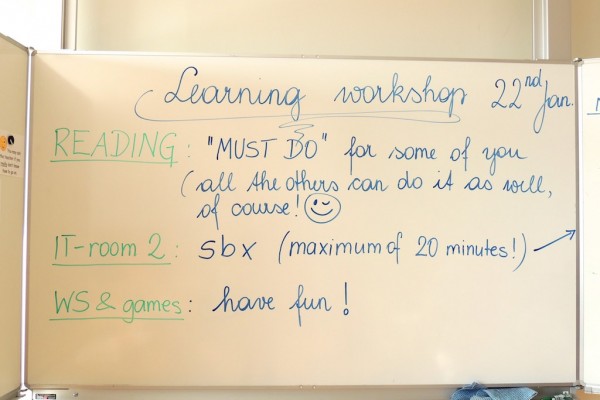 Learning workshop 22nd Jan.
READING: "MUST DO" for some of you
(all the others can do it as well,
of course!
IT-room 2: sbx (maximum of 20 minutes!)
WS & games: have fun!